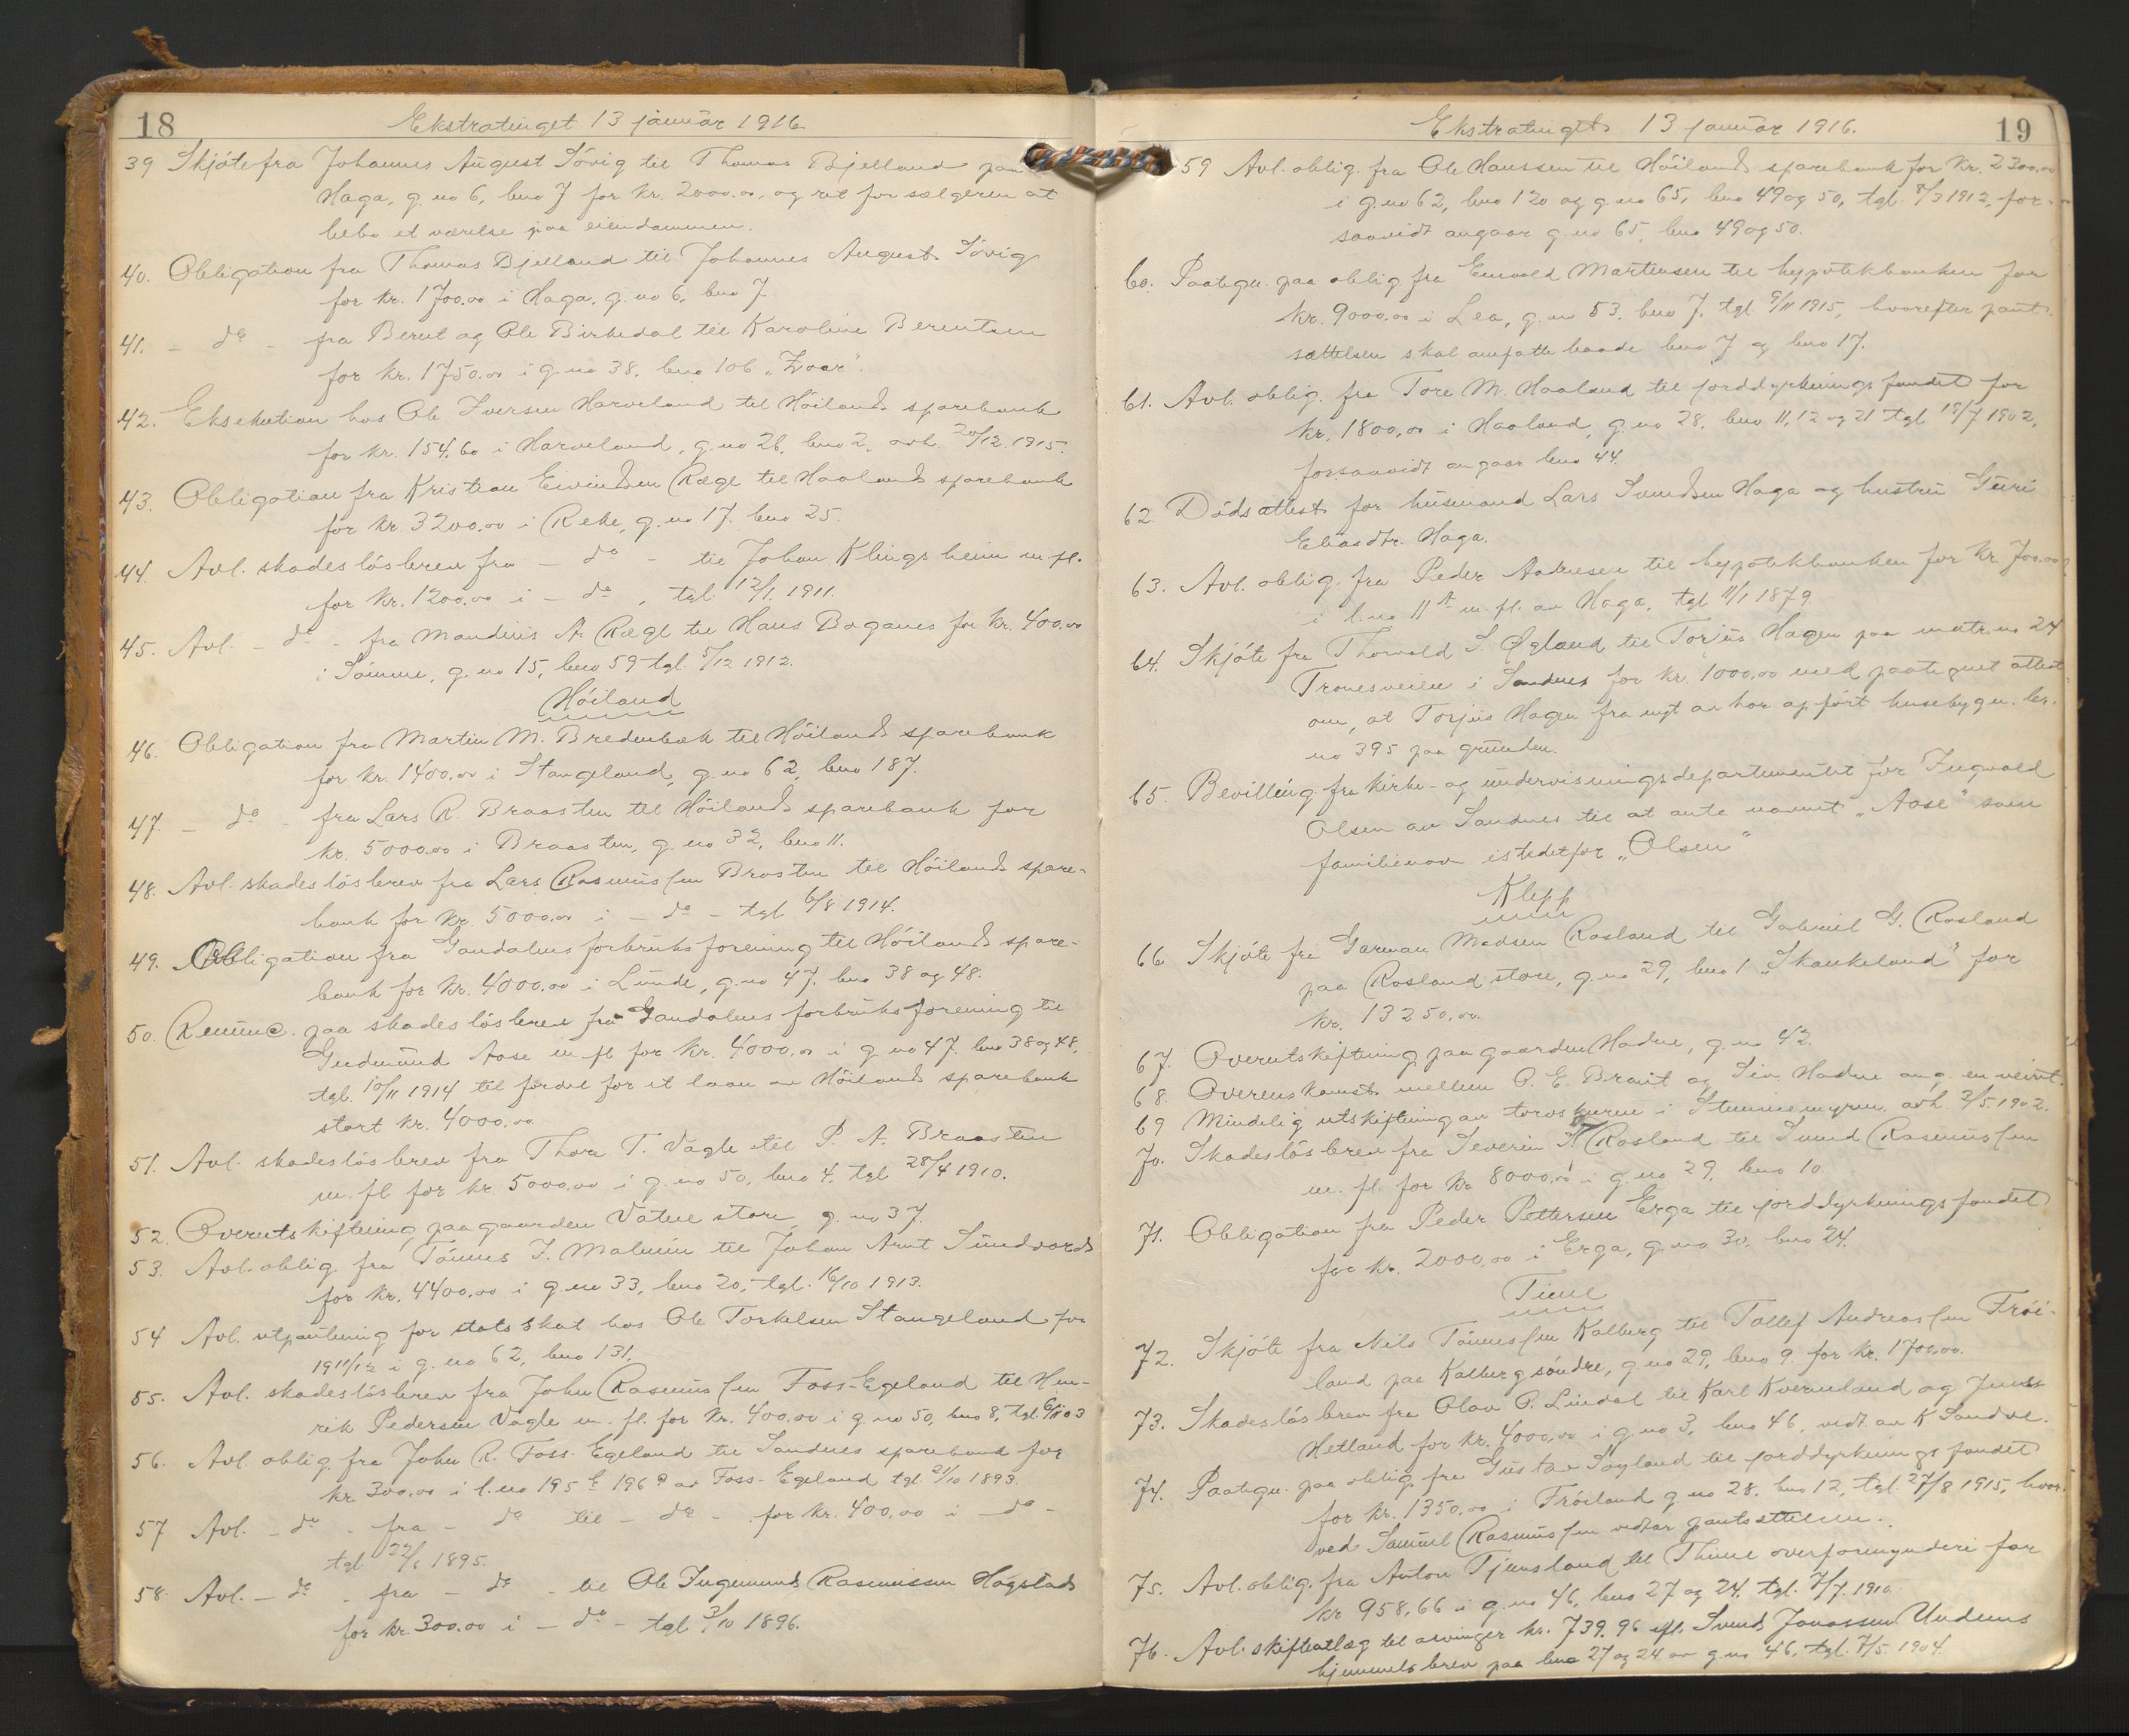 18
Ekstratinget 13 januar 1916
39 Skjöte fra Johannes August Sövig til Thomas Bjelland paa
Haga, g. no 6, bno 7 for kr. 2000.00, og ret for sælgeren at
bebo et værelse paa eiendommen.
40. Obligation fra Thomas Bjelland til Johannes August Sövig
for kr. 1700.00 i Haga, g. no 6, bno 7.
41. - do - fra Berut og Ole Birkedal til Karoline Berentsen
for kr. 1750.00 i g. no 38, bno 106 „Zoar".
42. Eksekution hos Ole Iversen Harveland til Höilands sparebank
for kr. 154.60 i Harveland, g. no 26, bno 2, avh. 20/12 1915.
43. Obligation fra Kristian Eivindsen Rege til Haalands sparebank
for kr. 3200.00 i Reke, g. no 17 bno 25.
44. Avl. skadeslösbrev fra - do - til Johan Klingsheim m. fl.
for kr. 1200.00 i - do, tgl. 12/1 1911.
45. Avl. - do - fra Maudius A. Rege til Hans Boganes for kr. 400.00
i Sömme, g. no 15, bno 59 tgl. 5/12 1912.
Höiland
46. Obligation fra Martin M. Bredenbæk til Höilands sparebank
for kr. 1400.00 i Stangeland, g. no 62, bno 187.
47. - do - fra Lars R. Braasten til Höilands sparebank for
kr. 5000.00 i Braasten, g. no 32, bno 11.
48. Avl. skadeslösbrev fra Lars Rasmussen Brasten til Höilands spare-
bank for kr. 5000.00 i - do - tgl. 6/8 1914.
49. Obligation fra Gandalens forbruksforening til Höilands spare-
bank for kr. 4000.00 i Lunde, g. no 47, bno 38 og 48.
50. Renunc. paa skadeslösbrev fra Gandalens forbruksforening til
Gudmund Aase m. fl for kr. 4000.00 i g. no 47 bno 38 og 48,
tgl. 10/11 1914 til fordel for et laan av Höilands sparebank
stort kr. 4000.00
51. Avl. skadeslösbrev fra Thore T. Vagle til P. A. Braasten
m. fl for kr. 5000.00 i g. no 50, bno 4, tgl 28/4 1910.
52. Overutskiftning paa gaarden Vatne store, g. no 37.
53. Avl. oblig. fra Tönnes J. Malmin til Johan Arnt Sundvord
for kr. 4400.00 i g. no 33, bno 20, tgl. 16/10 1913.
54 Avl. utpantning for statsskat hos Ole Torkelsen Stangeland for
1911/12 i g. no 62, bno 131.
55. Avl. skadeslösbrev fra John Rasmussen Foss-Egeland til Hen-
rik Pedersen Vagle m. fl. for kr. 400.00 i g. no 50, bno 8, tgl. 6/11 03
56. Avl. oblig. fra John R. Foss-Egeland til Sandnes sparebank for
kr. 300.00 i l. no 195 b 196 a av Foss-Egeland tgl. 21/10 1893.
57 Avl. - do - fra - do til - do - for kr. 400.00 i - do -
tgl 22/6 1895.
58. Avl. - do - fra - do - til Ole Ingemund Rasmussen Högstad
for kr. 300.00 i - do - tgl 3/10 1896.
Ekstratinget 13 januar 1916.
19
59 Avl. oblig. fra Ole Hanssen til Höilands sparebank for kr. 2300.00
i g. no 62, bno 120 og g. no 65, bno 49 og 50, tgl. 8/3 1912, for-
saavidt angaar g. no 65, bno 49 og 50.
60. Paategn. paa oblig fra Enevald Martinsen til hypotekbanken for
kr. 9000.00 i Lea, g. no 53, bno 7, tgl 9/11 1915, hvorefter pant-
sættelsen skal omfatte baade bno 7 og bno 17.
61. Avl. oblig. fra Tore M. Haaland til jorddyrkningsfondet for
kr. 1800.00 i Haaland, g. no 28, bno 11, 12 og 21 tgl 18/7 1902,
forsaavidt angaar bno 44.
62. Dödsattest for husmand Lars Svendsen Haga og hustru Guri
Eliasdtr. Haga.
63. Avl. oblig. fra Peder Andersen til hypotekbanken for kr. 700.00
i l. no 11 a m. fl. av Haga, tgl 11/1 1879.
64. Skjöte fra Thorvald S. Ogland til Torjus Hagen paa matr. no 24
Tronesveien i Sandnes for kr. 1000.00 med paategnet attest
om, at Torjus Hagen fra nyt av har opfört husebygn. br.
no 395 paa grunden.
65. Bevilling fra kirke- og undervisningsdepartementet for Ingvald
Olsen av Sandnes til at anta navnet „Aase" som
familienavn istedetfor „Olsen"
Klepp
66 Skjöte fra Garman Madsen Rosland til Gabriel G. Rosland
paa Rosland store, g. no 29, bno 1 „Skankeland" for
kr. 13250.00.
67. Overutskiftning paa gaarden Hadne, g. no 42.
68. Overenskomst mellem O. E. Braut og Siv Hadne ang. en veiret.
69 Mindelig utskiftning av torvskuren i Stemmemyren, avh. 2/5 1902.
70. Skadeslösbrev fra Severin Rosland til Svend Rasmussen
m. fl. for kr 8000.00 i g. no 29, bno 10.
71. Obligation fra Peder Pettersen Erga til jorddyrkningsfondet
for kr. 2000.00 i Erga, g. no 30, bno 24.
Time
72. Skjöte fra Nils Tönnessen Kalberg til Tollef Andreassen Fröi-
land paa Kalberg söndre, g. no 29, bno 9 for kr. 1700.00.
73. Skadeslösbrev fra Olav O. Lindal til Karl Kverneland og Jens
Hetland for kr. 4000.00 i g. no 3, bno 46, vedt. av K Sandve.
74. Paategn. paa oblig. fra Gustav Soyland til jorddyrkningsfondet
for kr. 1350.00 i Fröiland g. no 28, bno 12, tgl. 27/8 1915, hvor-
ved Samuel Rasmussen vedtar pantsettelsen.
75. Avl. oblig. fra Anton Tjemsland til Thime overformynderi for
kr 958,66 i g. no 46, bno 27 og 24, tgl. 7/7 1910.
76. Avl. skifteutlæg til arvinger kr. 739.96 efl. Svend Jonassen Undems
hjemmelsbrev paa bno 27 og 24 av g. no 46, tgl. 7/5 1904.